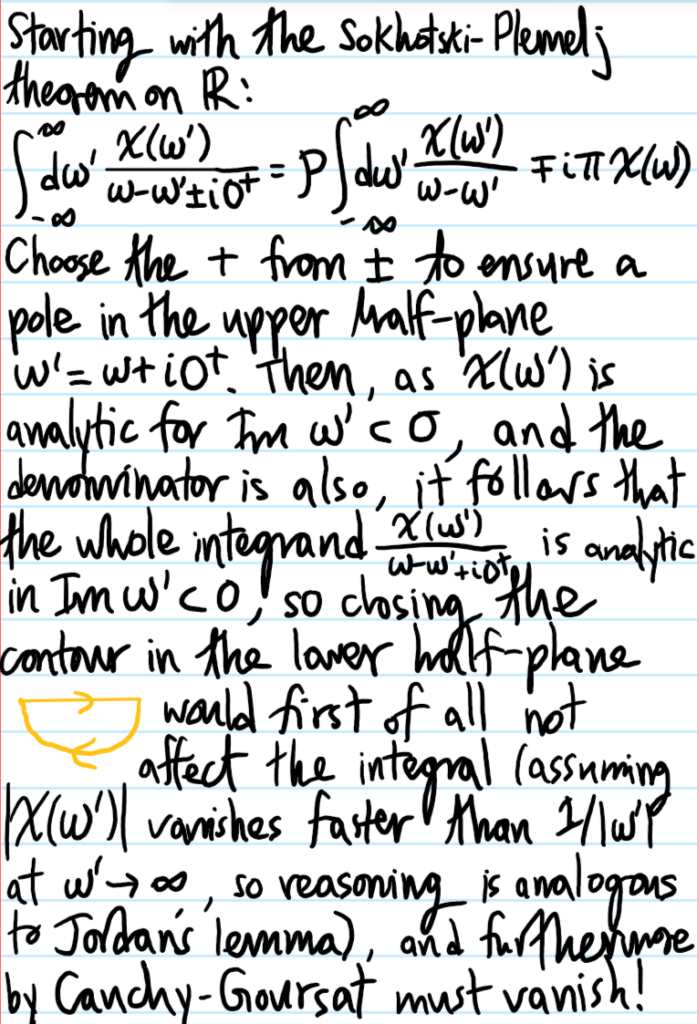 Starting with the Sokhotski-Plemelj
theorem on ℝ:
∫_{-∞}^{∞} dω' χ(ω')/(ω-ω'±i0⁺) = P∫_{-∞}^{∞} dω' χ(ω')/(ω-ω') ∓ iπχ(ω)
Choose the + from ± to ensure a
pole in the upper half-plane
ω'=ω+i0⁺. Then, as χ(ω') is
analytic for Im ω' < 0, and the
denominator is also, it follows that
the whole integrand χ(ω')/(ω-ω'+i0⁺) is analytic
in Im ω' < 0, so closing the
contour in the lower half-plane
would first of all not
affect the integral (assuming
|χ(ω')| vanishes faster than 1/|ω'|
at ω'→∞, so reasoning is analogous
to Jordan's lemma), and furthermore
by Cauchy-Goursat must vanish!